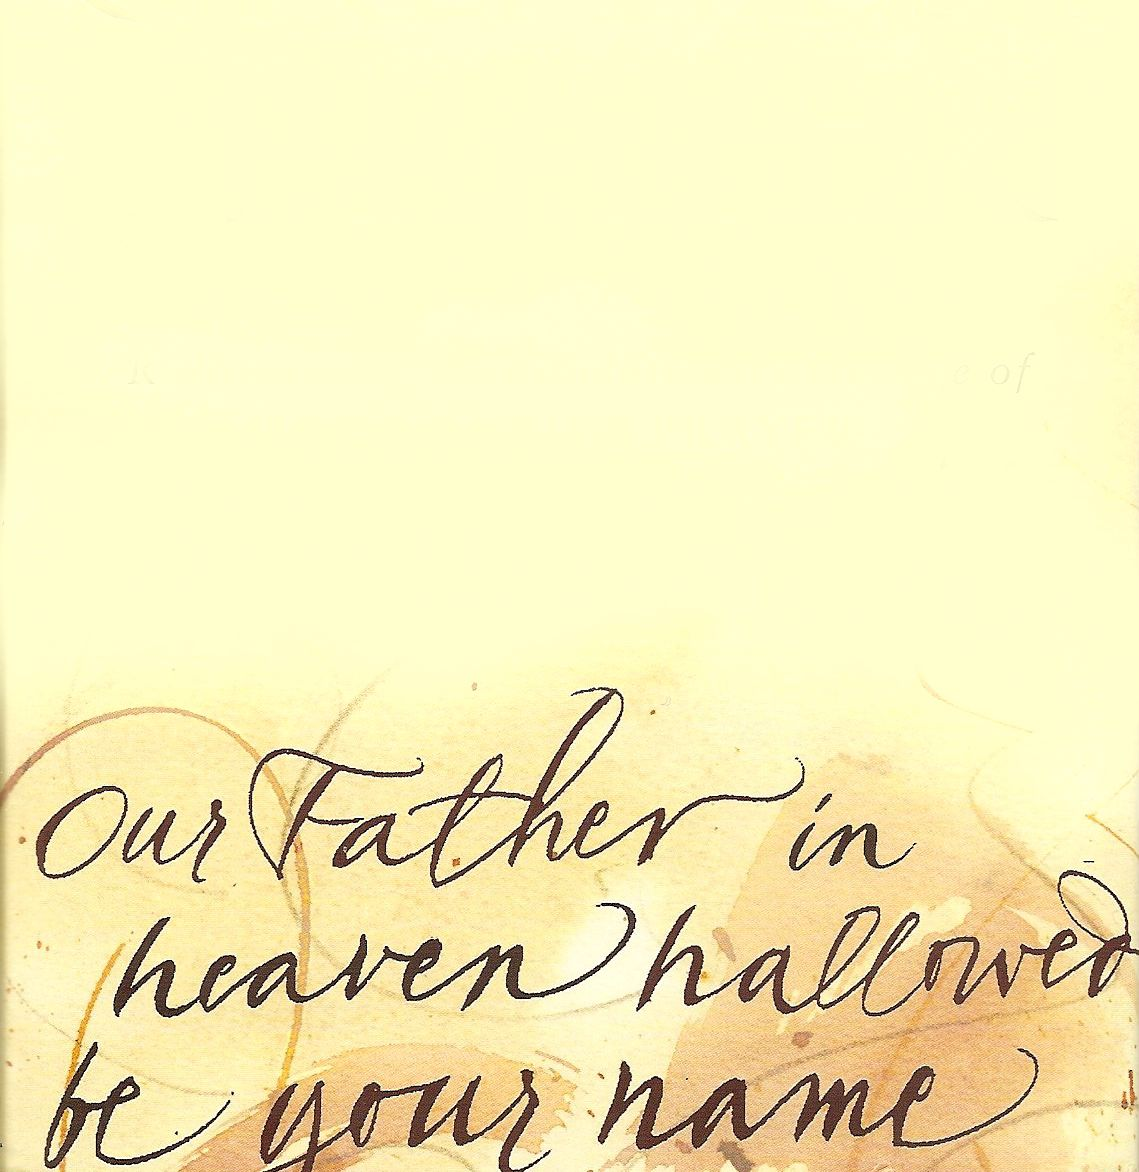 of
Our Father in
heaven hallowed
be your name